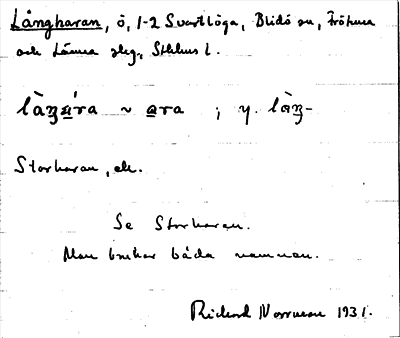 Långharan, ö, 1-2 Svartlöga, Blidö sn, Frötuna
och Länna slg, Sthlms l.
làŋa̲´ra ~ a̲ra ; y. là̲ŋ-
Storharan, ek.
Se Storharan.
Man brukar båda namnen.
Rickard Norrman 1931.